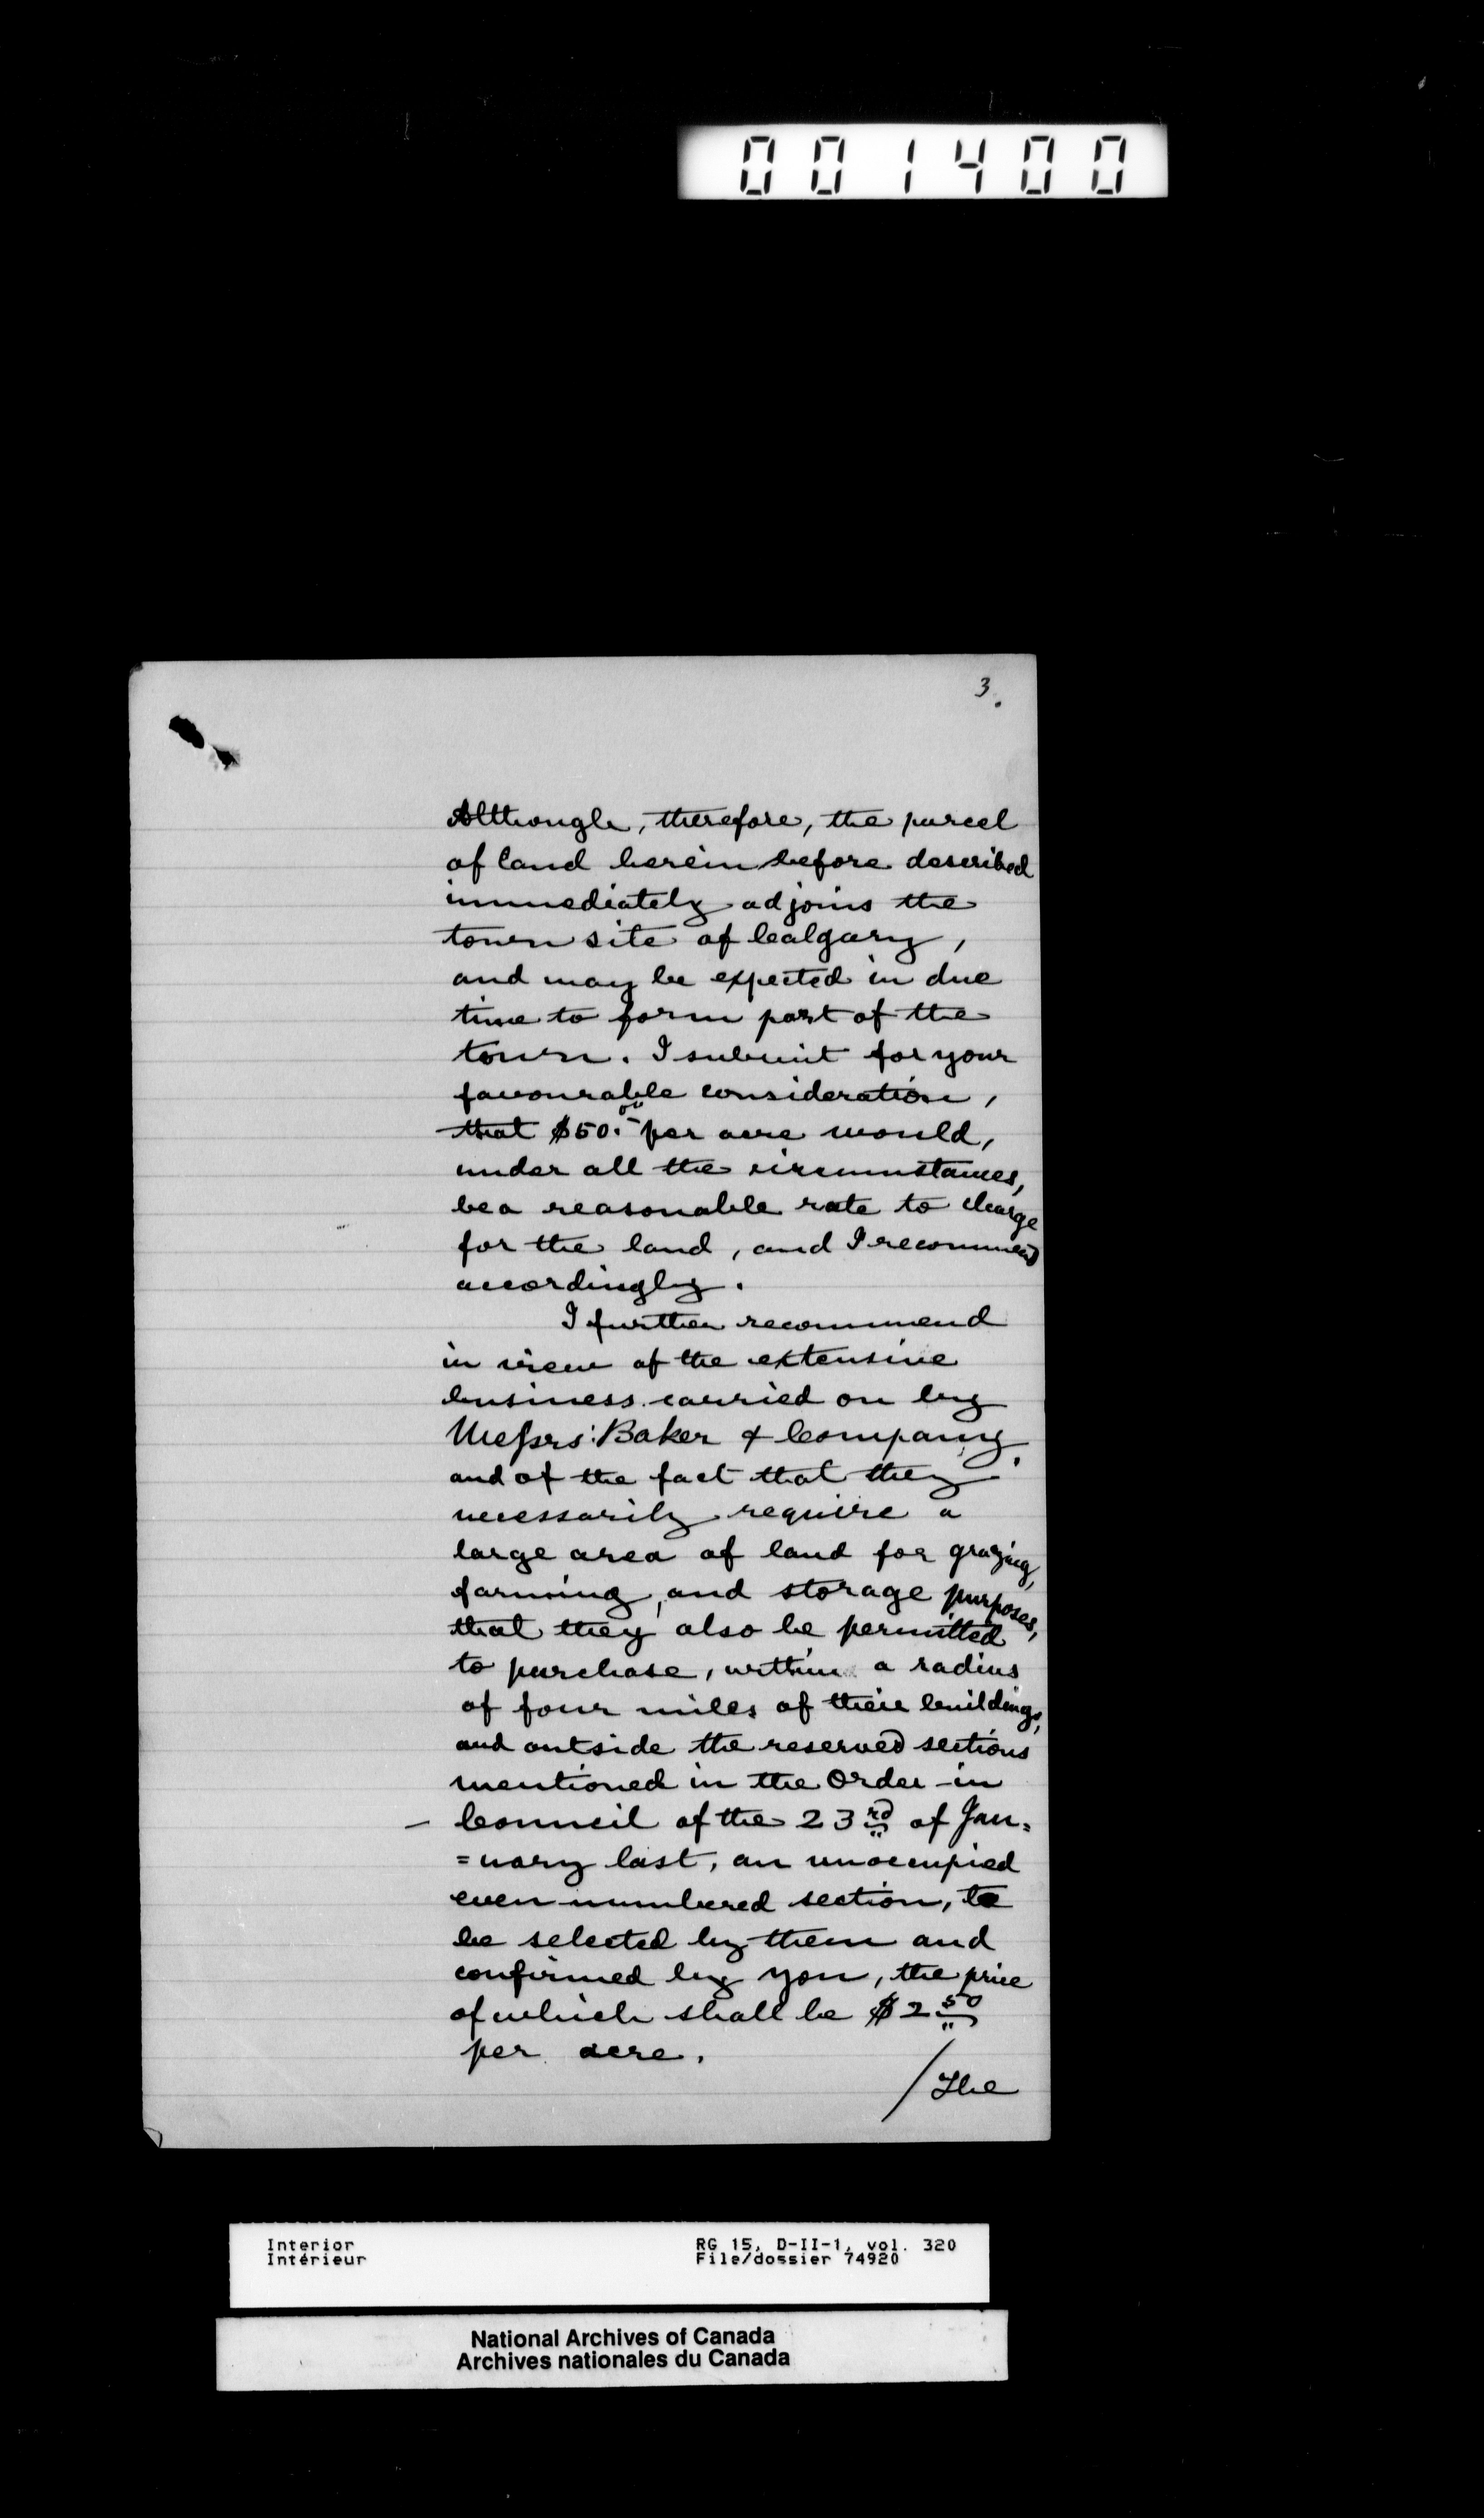 001400
3.
Although, therefore, the parcel
of land herein before described
immediately adjoins the
town site of Calgary,
and may be expected in due
time to form part of the
town. I submit for your
favourable consideration,
that $50.00 per acre would,
under all the circumstances,
be a reasonable rate to charge
for the land, and I recommend
accordingly.
I further recommend
in view of the extensive
business carried on by
Messrs: Baker & Company.
and of the fact that they
necessarily require a
large area of land for grazing,
farming, and storage purposes,
that they also be permitted
to purchase, within a radius
of four miles of their buildings,
and outside the reserved sections
mentioned in the Order-in
- Council of the 23rd of Jan=
=uary last, an unoccupied
even numbered section, to
be selected by them and
confirmed by you, the price
of which shall be $2 50
per acre.
/The
Interior
Intérieur
RG 15, D-II-1, vol. 320
File/dossier 74920
National Archives of Canada
Archives nationales du Canada